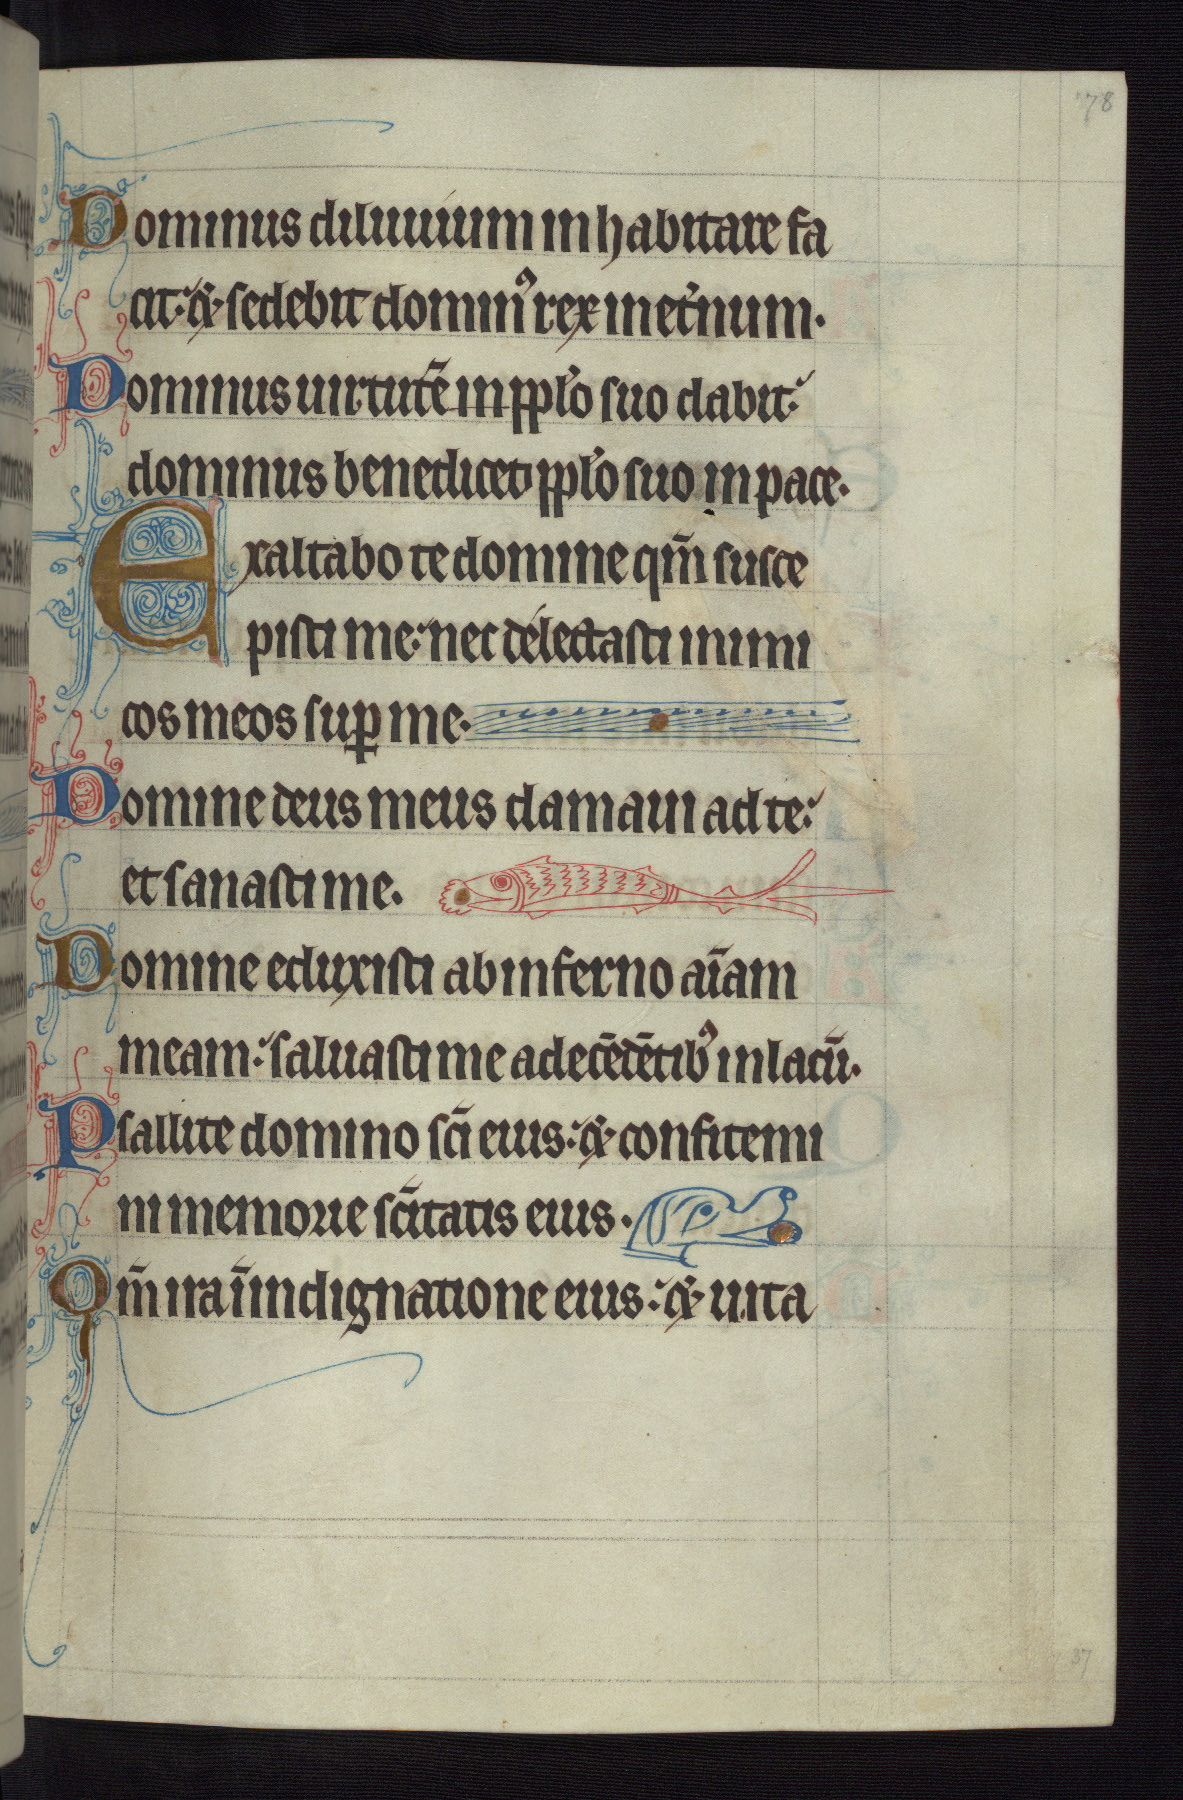 78
Dominus diluuium inhabitare fa
cit: & sedebit domin᾽ rex in et̉num.
Dominus uirtutē in pplo suo dabit:
dominus benedicet pplo suo in pace.
Exaltabo te domine qm̄ susce
pisti me: nec delectasti inimi
cos meos sup̱ me.
Domine deus meus clamaui ad te:
et sanasti me.
Domine eduxisti ab inferno aīam
meam: saluasti me a decēdētib᾽ in lacū.
Psallite domino sc̄i eius: & confitemi
ni memorie sc̄itatis eius.
Qm̄ ira ī indignatione eius: & uita
37